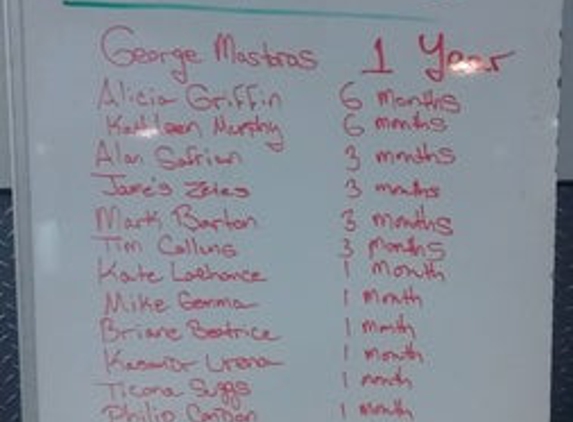 George Mastras 1 Year
Alicia Griffin 6 months
Kathleen Murphy 6 months
Alan Safrian 3 months
James Zeles 3 months
Mark Barton 3 months
Tim Collins 3 months
Kate LaChance 1 month
Mike Gemma 1 month
Briane Beatrice 1 month
Urena 1 month
Ticana Suggs 1 month
Philip 1 month